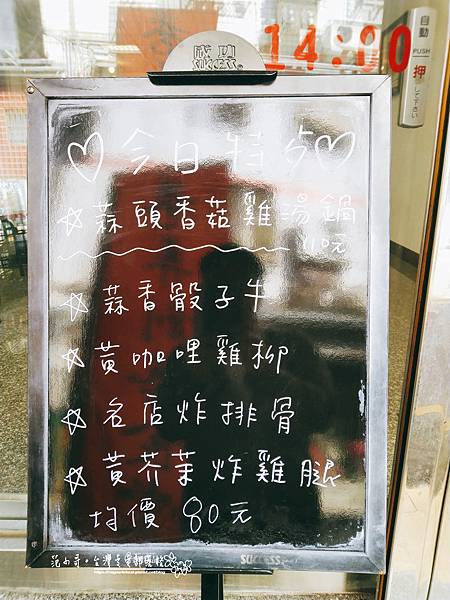 成功
SUCCESS
14:00
自動
PUSH
押
して下さい
♡今日特夕♡
☆蒜頭香菇雞湯鍋
110元
☆蒜香骰子牛
☆黃咖哩雞柳
☆名店炸排骨
☆黃芥茉炸雞腿
均價80元
SUCCESS